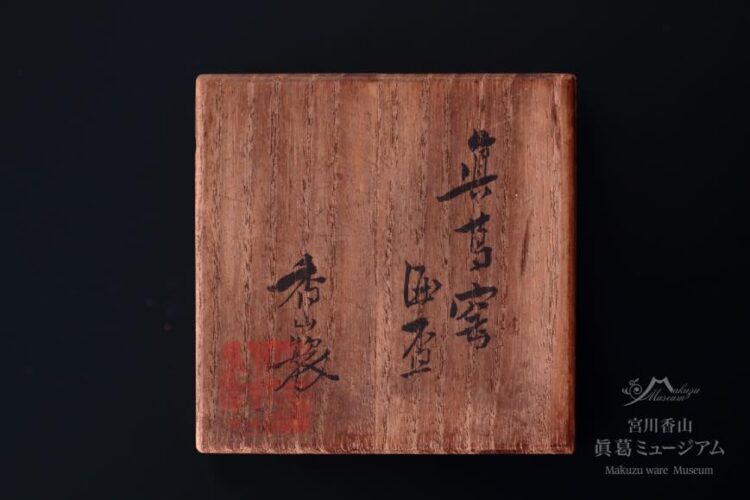 眞葛窯
酒盃
香山製
Makuzu
Museum
宮川香山
眞葛ミュージアム
Makuzu ware Museum